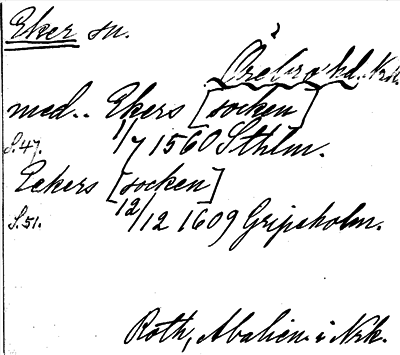 Eker sn.
Örebro hd. Nrk.
med.. Ekers [socken]
S. 47. 1/7 1560 Sthlm.
Eckers [socken]
S. 51. 12/12 1609 Gripsholm.
Roth, Abalien. i Nrk.